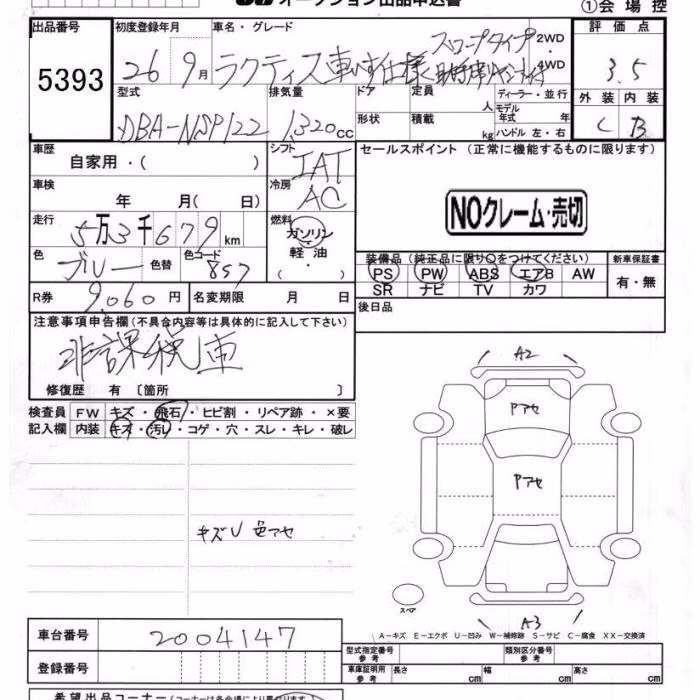 オークション出品申込書
①会場控
出品番号 初度登録年月 車名・グレード 評価点
5393
26 9月 ラクティス車いす仕様 スロープタイプ 2WD 4WD 3.5
型式 排気量 ドア 定員 人 ディーラー・並行 外装 内装
モデル年式 年
DBA-NSP122 1,320cc 形状 積載 kg ハンドル 左・右 C B
車歴 シフト セールスポイント (正常に機能するものに限ります)
自家用・( ) IAT
車検 冷房
年 月(日) AC
NOクレーム・売切
走行 燃料
5万3千679km ガソリン
軽油
色 色替 色コード 装備品 (純正品に限り○をつけてください) 新車保証書
ブルー 8S7 PS PW ABS エアB AW 有・無
SR ナビ TV カワ
R券 9,060円 名変期限 月 日 後日品
注意事項申告欄 (不具合内容等は具体的に記入して下さい)
非課税車
修復歴 有 〔箇所 〕
検査員記入欄 FW キズ・飛石・ヒビ割・リペア跡・×要
内装 キズ・汚れ・コゲ・穴・スレ・キレ・破レ
A2
Pアセ
Pアセ
キズU 色アセ
スペア
A3
A-キズ E-エクボ U-凹み W-補修跡 S-サビ C-腐食 XX-交換済
車台番号 2004147
型式指定番号 参考 類別区分番号 参考
登録番号 車庫証明用 参考 長さ cm 幅 cm 高さ cm
希望出品コーナー